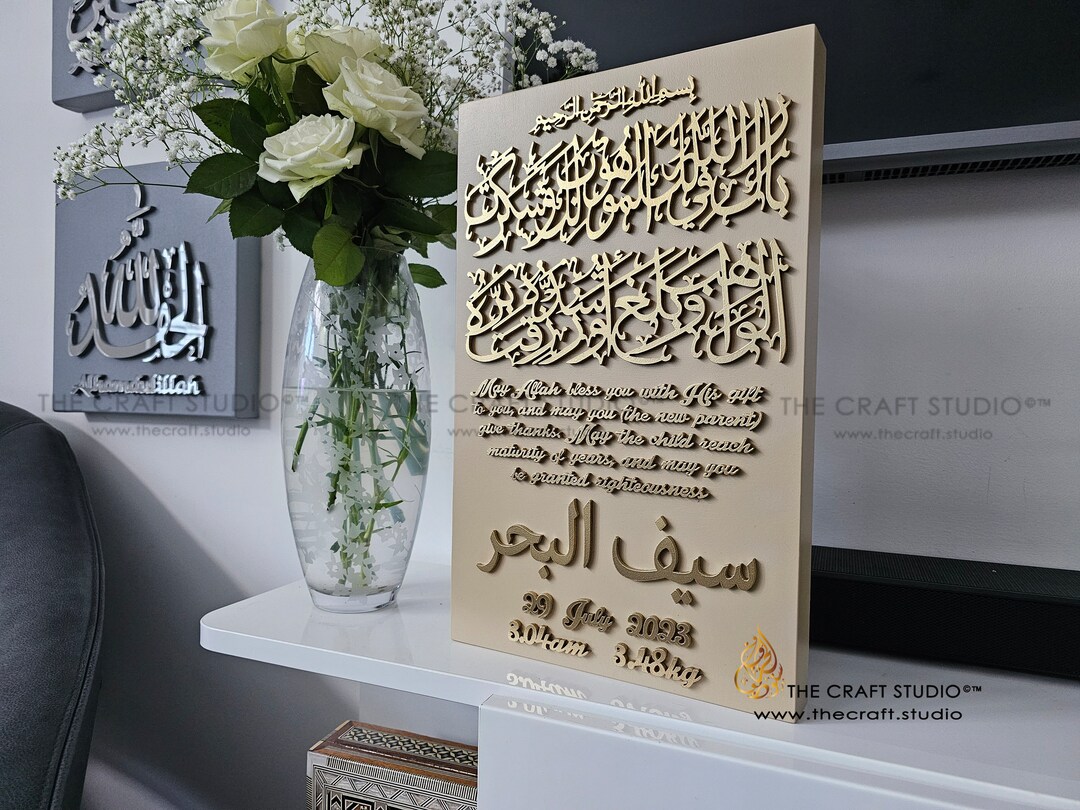 بسم الله الرحمن الرحيم
بارك الله لك في الموهوب لك وشكرت
الواهب وبلغ أشده ورزقت بره
May Allah bless you with His gift
to you, and may you (the new parent)
give thanks. May the child reach
maturity of years, and may you
be granted righteousness
سيف البحر
29 July 2023
3.04am 3.48kg
الحمد لله
Alhamdulillah
THE CRAFT STUDIO©™
www.thecraft.studio
THE CRAFT STUDIO©™
www.thecraft.studio
THE CRAFT STUDIO©™
www.thecraft.studio
THE CRAFT STUDIO©™
www.thecraft.studio